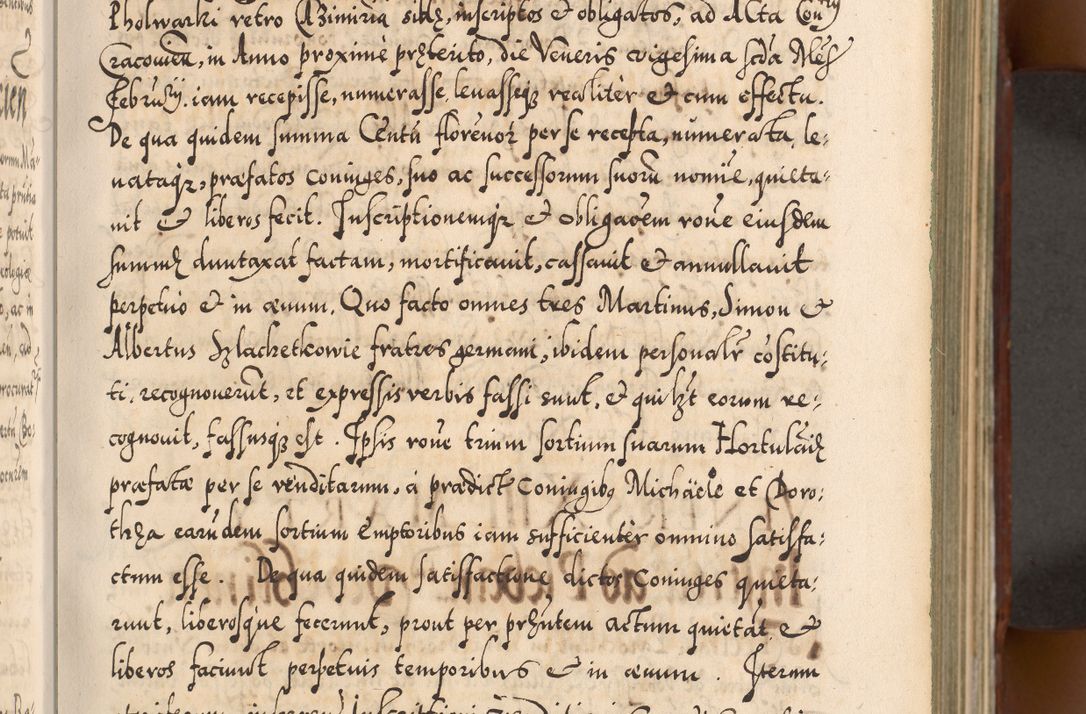 Pholwarki retro Casimiria sibi, inscriptos et obligatos, ad Acta Con
Cracovien, in Anno proxime prȩterito, die Veneris vigesima scda Mes
Februarij. iam recepisse, numerasse, levasseqȝ realiter et cum effectu.
De qua quidem summa Centu florenoȝ per se recepta, numerata, le-
vataqȝ, præfatos Coniuges, suo ac successorum suoru nomie, quieta-
vit et liberos fecit. Inscriptionemqȝ et obligaoem roue eiusdem
summȩ duntaxat factam, mortificavit, cassavit et annullavit
perpetuo et in ævum. Quo facto omnes tres Martinus, Simon et
Albertus Szlachetkowie fratres germani, ibidem personalr costitu-
ti, recognoverut, et expressis verbis fassi sunt, et quilȝt eorum re-
cognovit, fassusqȝ est. Ipsis roue trium sortium suarum Hortulaiȩ
præfatæ per se venditarum, à prædict Coniugibȝ Michäele et Doro-
thȩa earudem sortium Emptoribus iam sufficienter omnino satisfa-
ctum esse. De qua quidem satisfactione dictos Coniuges quieta-
runt, liberosque fecerunt, prout per prȩntem actum quietat et
liberos faciunt perpetuis temporibus et in ævum. Iterum